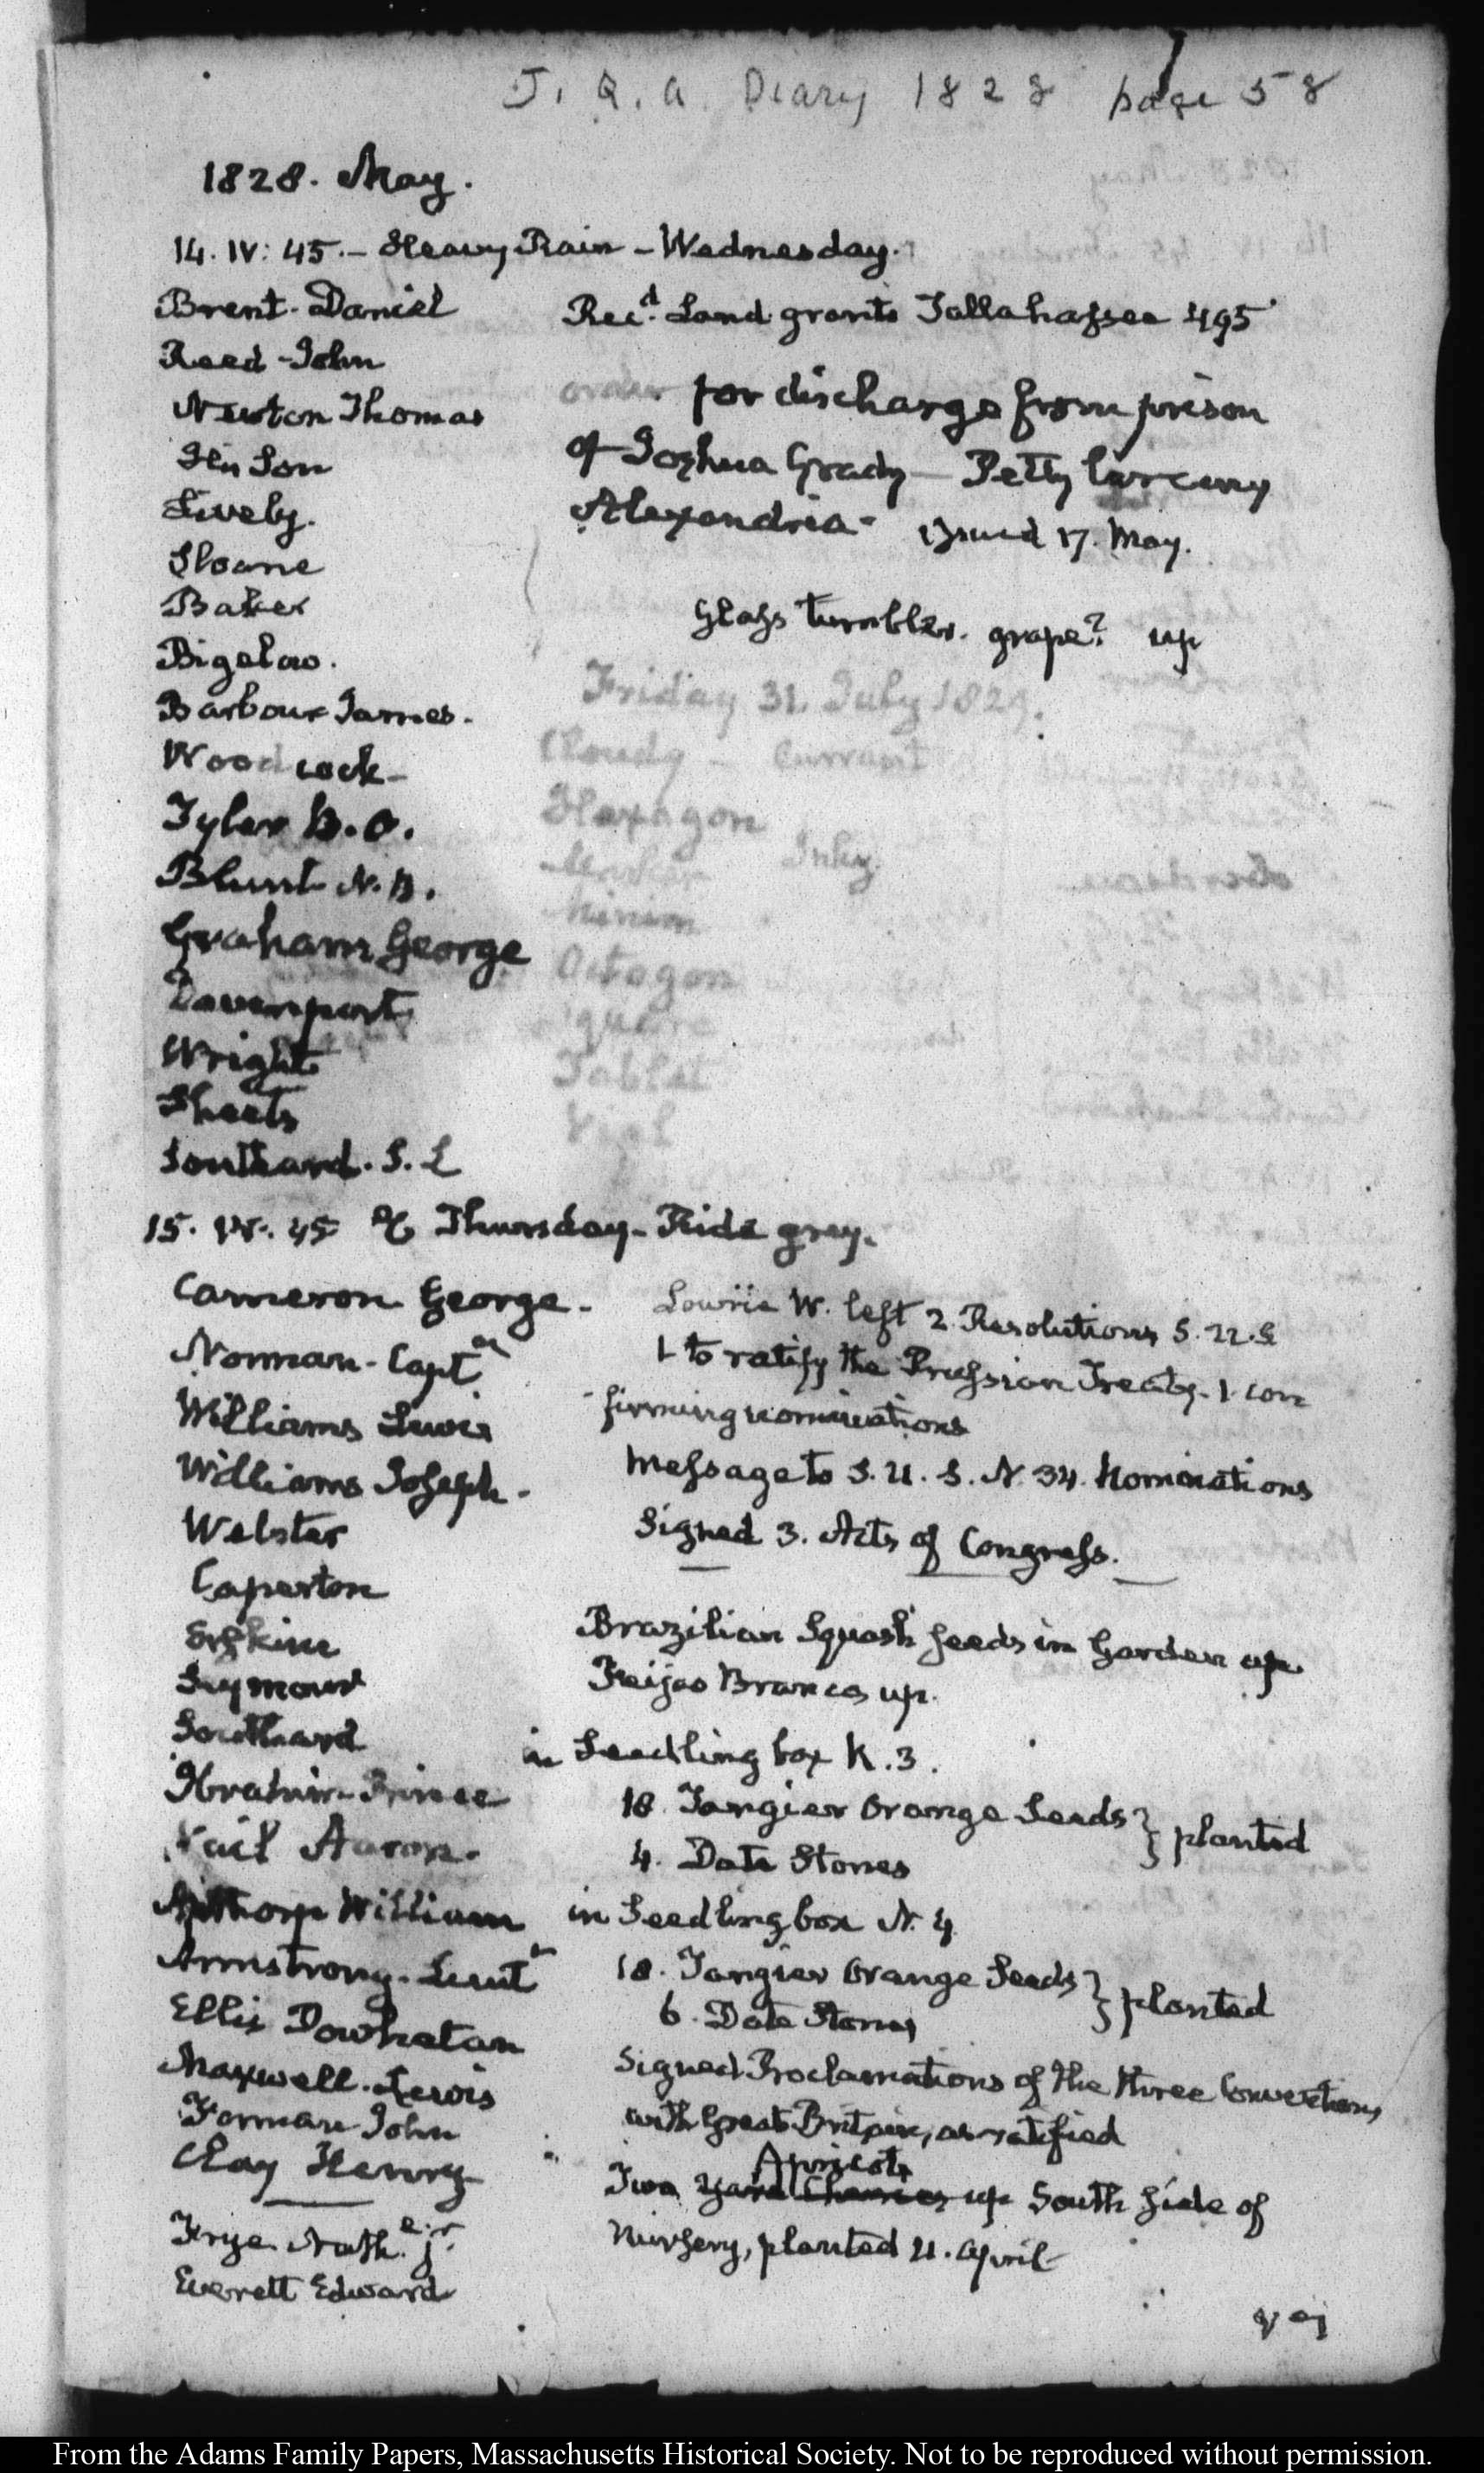 J. Q. A. Diary 1828 page 58
1828. May.
14. IV: 45. – Heavy Rain – Wednesday.
Brent. Daniel
Reed - John
Newton Thomas
His Son
Lively.
Sloane
Baker
Bigelow.
Barbour James.
Woodcock –
Tyler B. O.
Blunt N. B.
Graham George
Davenport
Wright
Sheets
Southard. S. L
Rec.d Land grants Tallahassee 495
order for discharge from prison
of Joshua Grady – Petty Larceny
Alexandria - issued 17. May.
Glass tumbler. grape? up
Friday 31. July 1829.
Cloudy – Currant
Hexagon
Inky.
Minim
Octagon
Square
Tablet
Vial
15. IV. 45 Thursday - Ride grey.
Cameron George.
Norman - Captn
Williams Lewis
Williams Joseph -
Webster
Caperton
Erskine
Seymour
Southard
Ibrahim Prince
Vail Aaron.
Apthorp William
Armstrong. Lieutt
Ellis Powhatan
Maxwell. Lewis
Forman John
Clay Henry
Frye Nath.e jr.
Everett Edward
Lowrie W. left 2 Resolutions S. U. S
1 to ratify the Prussian Treaty - 1 con
firming nominations
Message to S. U. S. N. 34. Nominations
Signed 3. Acts of Congress.
Brazilian Squash seeds in Garden up
Feijao Branco, up.
in Seedling box N. 3.
18. Tangier Orange Seeds } planted
4. Date Stones
in Seedling box N. 4
18. Tangier Orange Seeds } planted
6. Date Stones
Signed Proclamations of the three Conventions
with Great Britain, as ratified
Apricots
Two yard Cherries up South side of
Nursery, planted 21. April
From the Adams Family Papers, Massachusetts Historical Society. Not to be reproduced without permission.